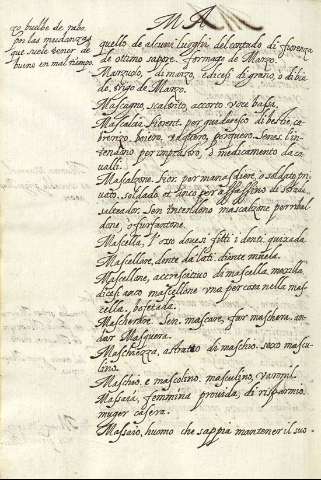 M A
zo buelbe de rabo
por las mudanzas
que suele tener de
bueno en mal tiempo.
quello de alcuni luoghi del contado di fiorenza
de ottimo sappre. formage de Marzo.
Marzuolo, di marzo, e dicesi di grano, o di bia
do, trigo de Marzo.
Mascagno, scaltrito, accorto, voce bassa,
Mascalcia, fiorent. per
brenzo, boiero,
tendono per impiastro, o medicamento da ca
ualli.
Mascalzone. fior. per masnadiere, o soldato pri
uato, soldado, et anco per assassino di strada
salteador. Sen. intendono mascalzone per ribal
done, o furfantone.
Mascella, l'osso doue si fitti i denti. quixada
Mascellare, dente da lati. diente muela.
Mascellone, accrescitiuo di mascella. maxilla
dicesi anco mascellone una percossa nella mas
cella, bofetada.
Mascherare. Sen. mascare, fior. maschera, an
dar Masquera.
Maschiezza, astratto di maschio. sexo mascu
lino.
Maschio, e mascolino, masculino, varonil.
Massaia, femmina prouida, di risparmio.
muger casera.
Massaio, huomo che sappia mantener il suo.